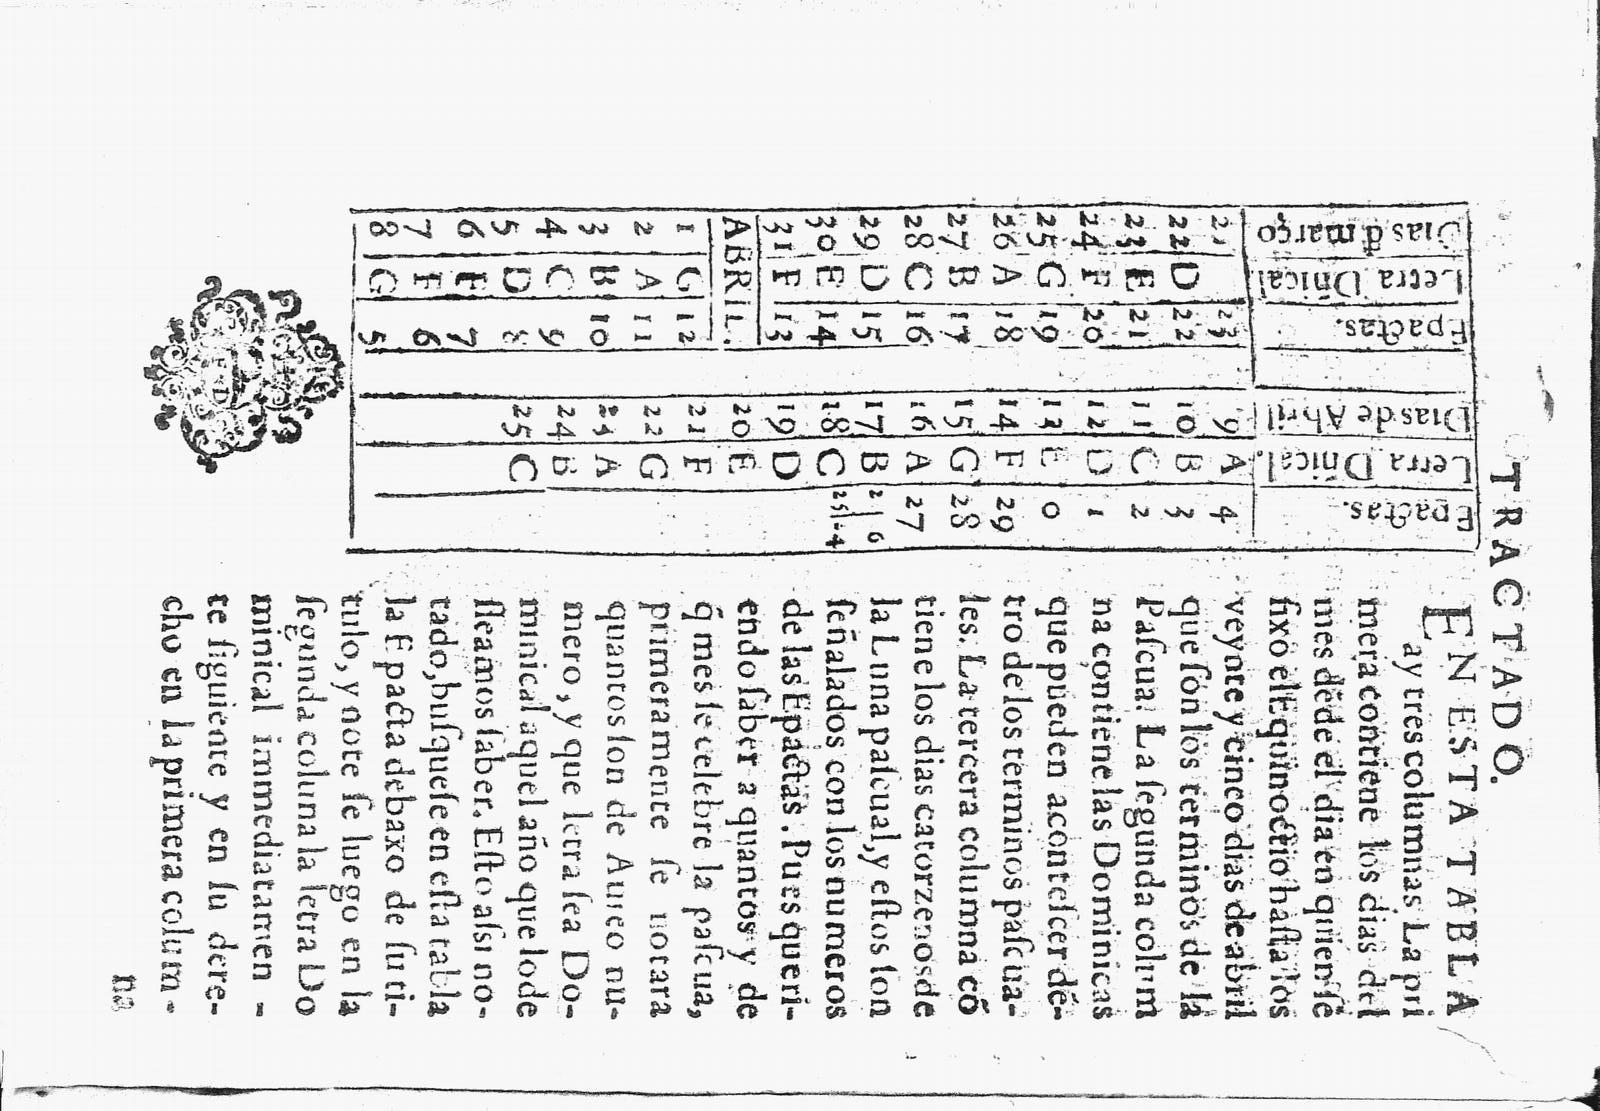 TRACTADO.
Dias đ março Letra Dñical. Epactas. Dias de Abril Letra Dñical. Epactas.
21 23 9 A 4
22 D 22 10 B 3
23 E 21 11 C 2
24 F 20 12 D 1
25 G 19 13 E 0
26 A 18 14 F 29
27 B 17 15 G 28
28 C 16 16 A 27
29 D 15 17 B 2|6
30 E 14 18 C 25|24
31 F 13 19 D
ABRIL. 20 E
1 G 12 21 F
2 A 11 22 G
3 B 10 23 A
4 C 9 24 B
5 D 8 25 C
6 E 7
7 F 6
8 G 5
EN ESTA TABLA
ay tres columnas La pri
mera contiene los dias del
mes dẽde el dia en quien ſe
fixo el Equinoctio haſta los
veynte y cinco dias de abril
que ſon los terminos de la
Paſcua. La ſegunda colum
na contiene las Dominicas
que pueden aconteſcer dẽ-
tro de los terminos paſcua-
les. La tercera columna cõ
tiene los dias catorzenos de
la Luna paſcual, y eſtos ſon
ſeñalados con los numeros
de las Epactas. Pues queri-
endo ſaber a quantos y de
q̃ mes ſe celebre la paſcua,
primeramente ſe notara
quantos ſon de Aureo nu-
mero, y que letra ſea Do-
minical aquel año que lo de
ſſeamos ſaber. Eſto aſsi no-
tado, buſqueſe en eſta tabla
la Epacta debaxo de ſu ti-
tulo, y note ſe luego en la
ſegunda coluna la letra Do
minical immediatamen -
te ſiguiente y en ſu dere-
cho en la primera colum -
na